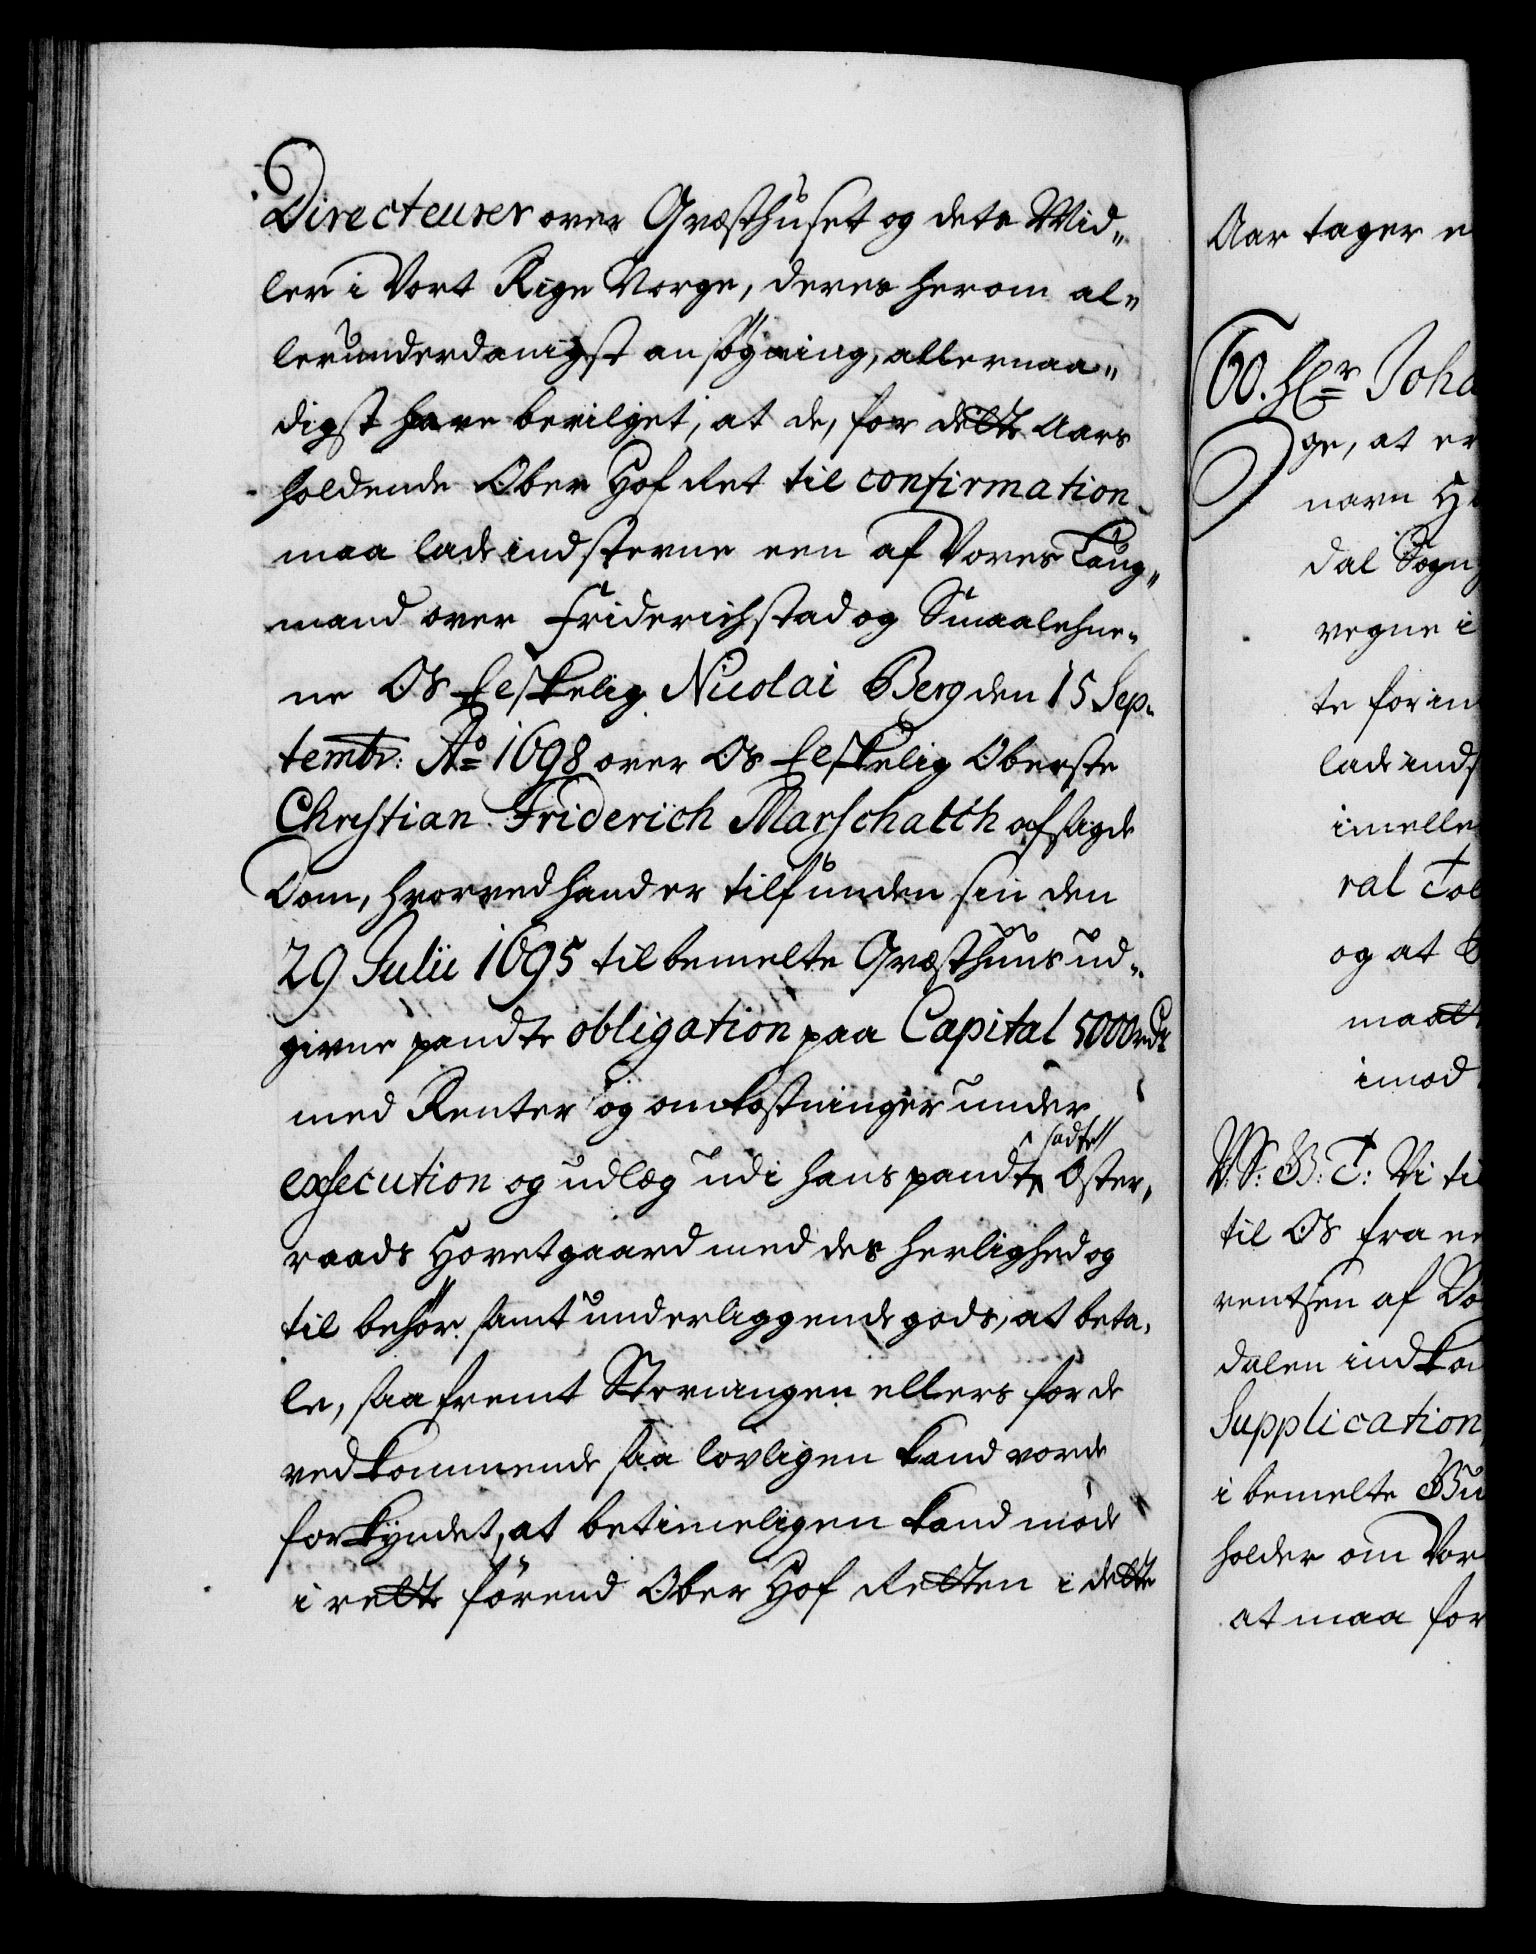 Directeurer over Qvæsthuset og dets Mid„
ler i Vort Rige Norge, deres herom al„
lerunderdanigst ansøgning, allernaa„
digst have bevilget, at de, for dette Aars
holdende Ober Hof Ret til confirmation
maa lade indsterne een af Vores Laug„
mand over Friderichstad og Smaalehne„
ne Os Elskelig Nicolai Berg den 15 Sep„
tembr: Ao 1698 over Os Elskelig Oberste
Christian Friderich Marschalch afsagde
Dom, hvorved hand er tilfunden sin den
29 Julii 1695 til bemelte Qvæsthuus ud„
givne pandte obligation paa Capital 5000 rdr
med Renter og omkostninger under
execution og udlæg udi hans pandtsadte Øster„
raads Hovetgaard med des herlighed og
til behør samt underliggende gods, at beta„
le, saa fremt Sterningen ellers for de
vedkommende saa lovligen kand vorde
forkyndet, at betimeligen kand møde
i rette förend Ober Hof Retten i dette
Aar tager e
60. Hr Joha
ge, at er
navn H
dal Sogn
vegne i
te forin
lade inds
imelle
ral Tol
og at
maatt
imod
V: S: B: T: Vi ti
til Os fra e
rentsen af Vo
dalen indkom
Supplication
i bemelte Bu
holder om Vor
at maa for